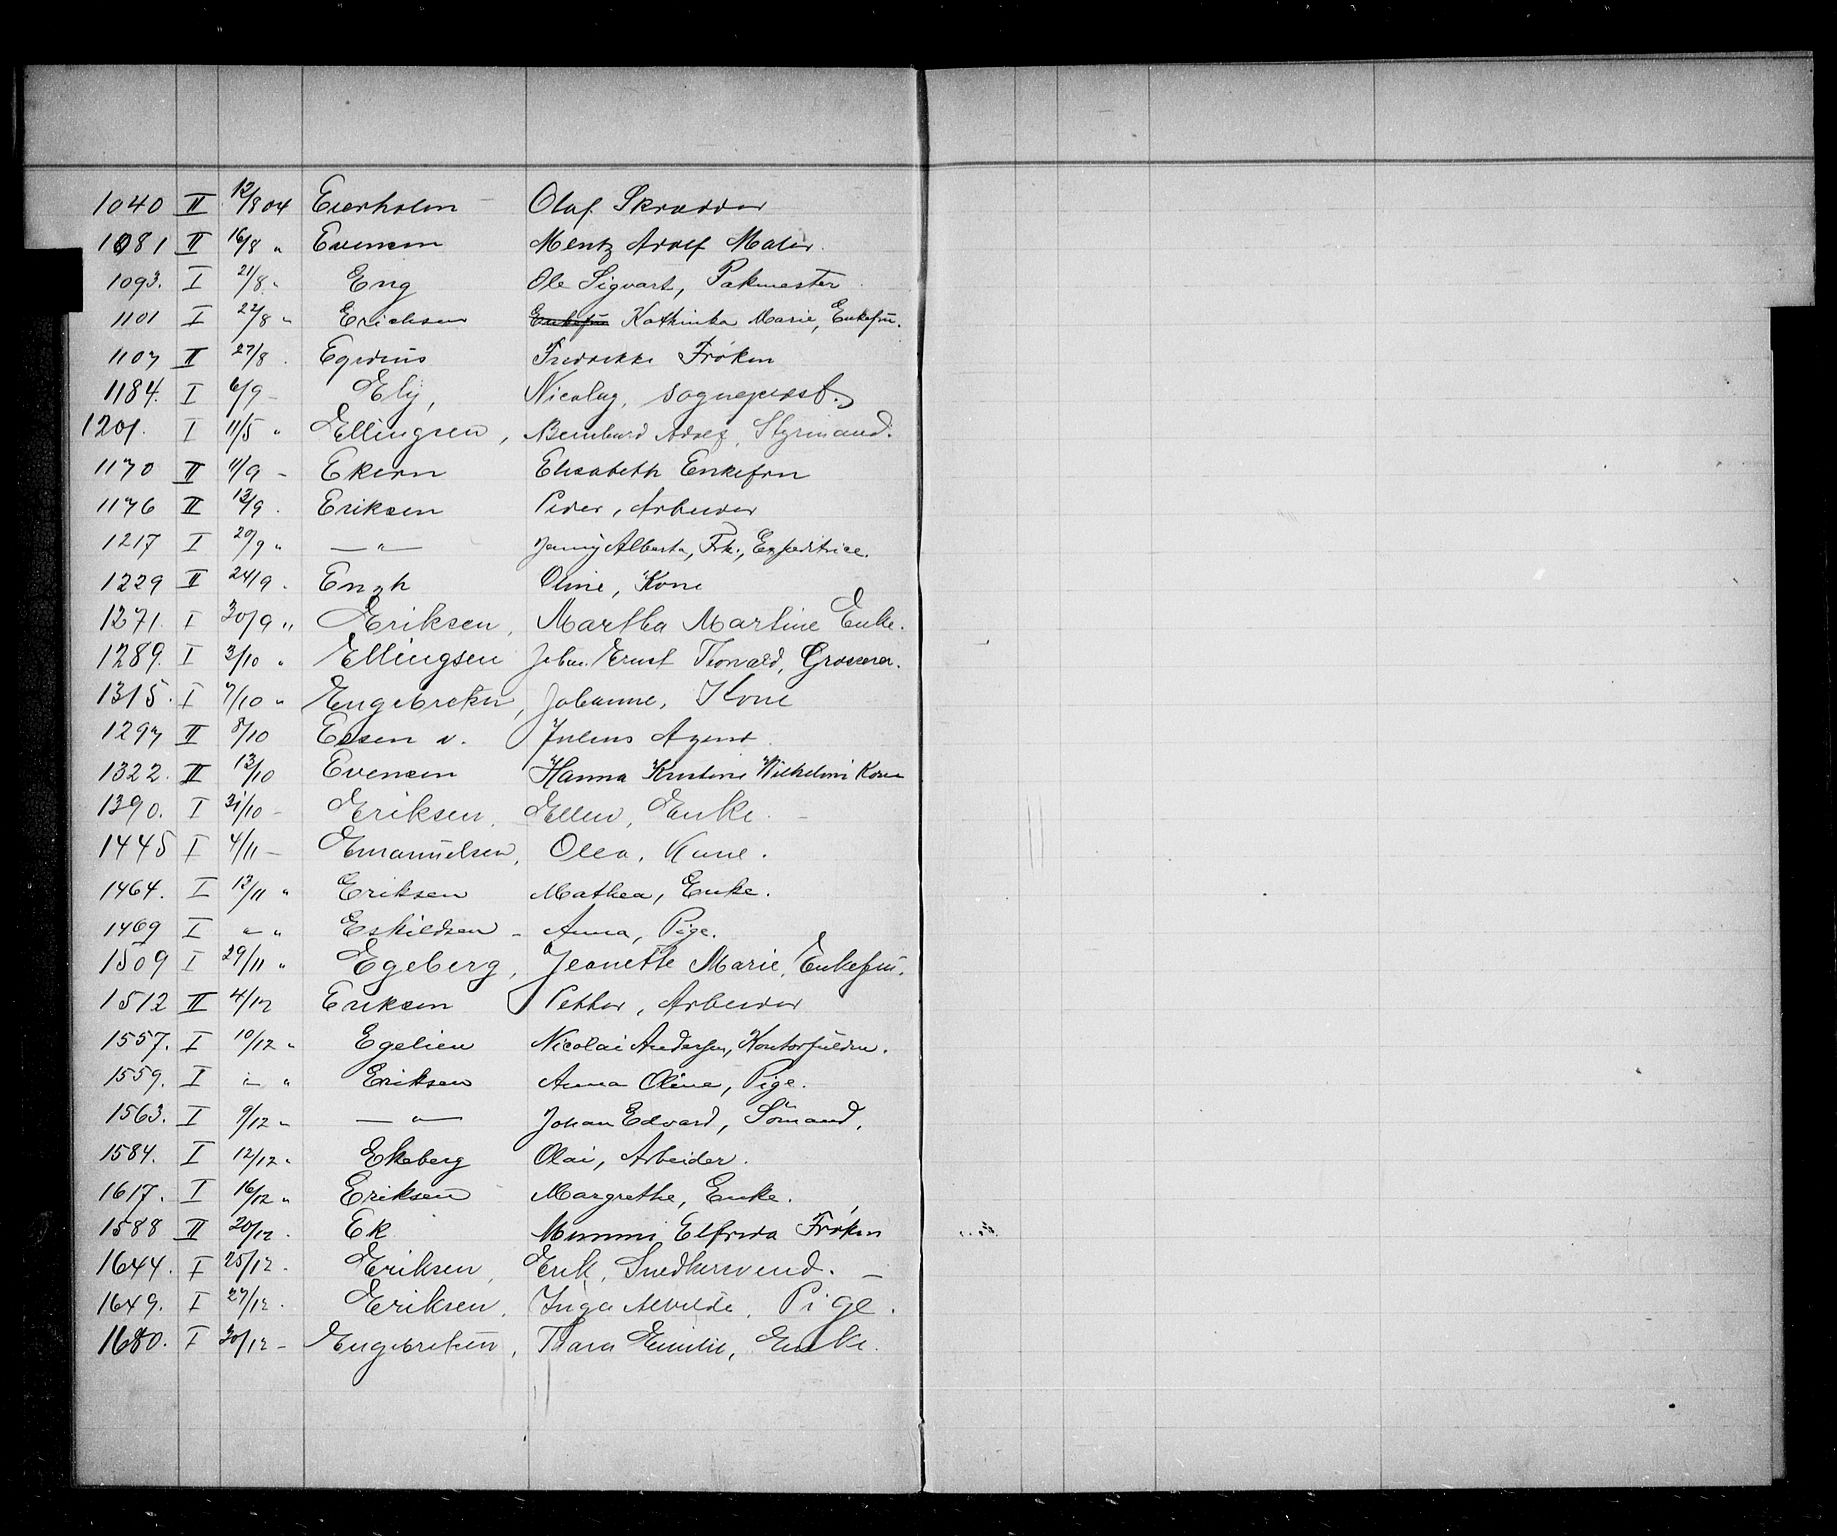 1040 II 12/8 04 Eierholm Olaf Skrædder
1081 II 16/8 " Evensen Mentz Adolf Maler.
1093. I 21/8 " Eng Ole Sigvart, Pakmester
1101 I 22/8 " Erichsen Kathinka Marie, Enkefru.
1107 II 27/8 . Egedius Fredrikke Frøken
1184. I 6/9 - Ely, Nicolay, sogneprest.
1201. I 11/5 " Ellingsen, Bernhard Adolf, Styrmand.
1170 II 11/9 - Ekern Elisabeth Enkefru
1176 II 13/9 . Eriksen Peder, Arbeider
1217 I 20/9 " — " — Jenny Alberta, Frk., Expeditrice.
1229 II 24/9 . Engh Oline, Kone
1271. I 30/9 " Eriksen, Martha Martine Enke.
1289. I 3/10 " Ellingsen Johan Ernst Thorvald, Grosserer.
1315. I 7/10 " Engebretsen, Johanne, Kone
1297 II 8/10 Essen v. Julius Agent
1322. II 13/10 Evensen Hanna Kristine Wilhelmi Kone
1390. I 31/10 - Eriksen, Ellen, Enke.
1445 I 4/11 - Emanuelsen, Olea, Kone.
1464. I 13/11 " Eriksen Mathea, Enke.
1469 I " " Eskildsen - Anna, Pige.
1509 I 29/11 " Egeberg, Jeanette Marie, Enkefru.
1512 II 4/12 Eriksen Petter, Arbeider
1557. I 10/12 " Egelien Nicolai Andersen,
1559. I " " Eriksen Anna Oline, Pige.
1563. I 9/12 " — " — Johan Edvard, Sömand.
1584. I 12/12 " Ekeberg Olai, Arbeider.
1617. I 16/12 " Eriksen Margrethe, Enke.
1588 II 20/12 . Ek Mimmi Elfrida Frøken
1644. I 25/12 - Eriksen, Erik, Snedkersvend. -
1649. I 27/12 . Eriksen, Inga Alvilde, Pige.
1680. I 30/12 - Engebretsen, Thara Emilie, Enke.